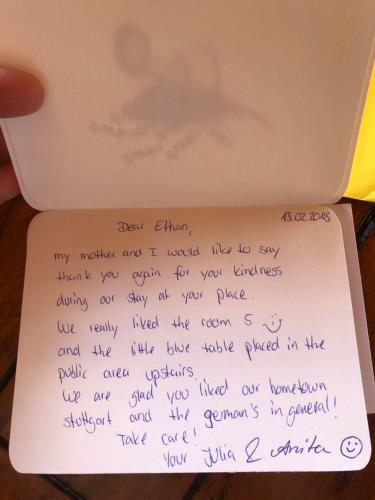 13.02.2018
Dear Ethan,
my mother and I would like to say
thank you again for your kindness
during our stay at your place.
We really liked the room 5 :)
and the little blue table placed in the
public area upstairs.
We are glad you liked our hometown
stuttgart and the german's in general!
Take care!
Your Julia & Anita ☺